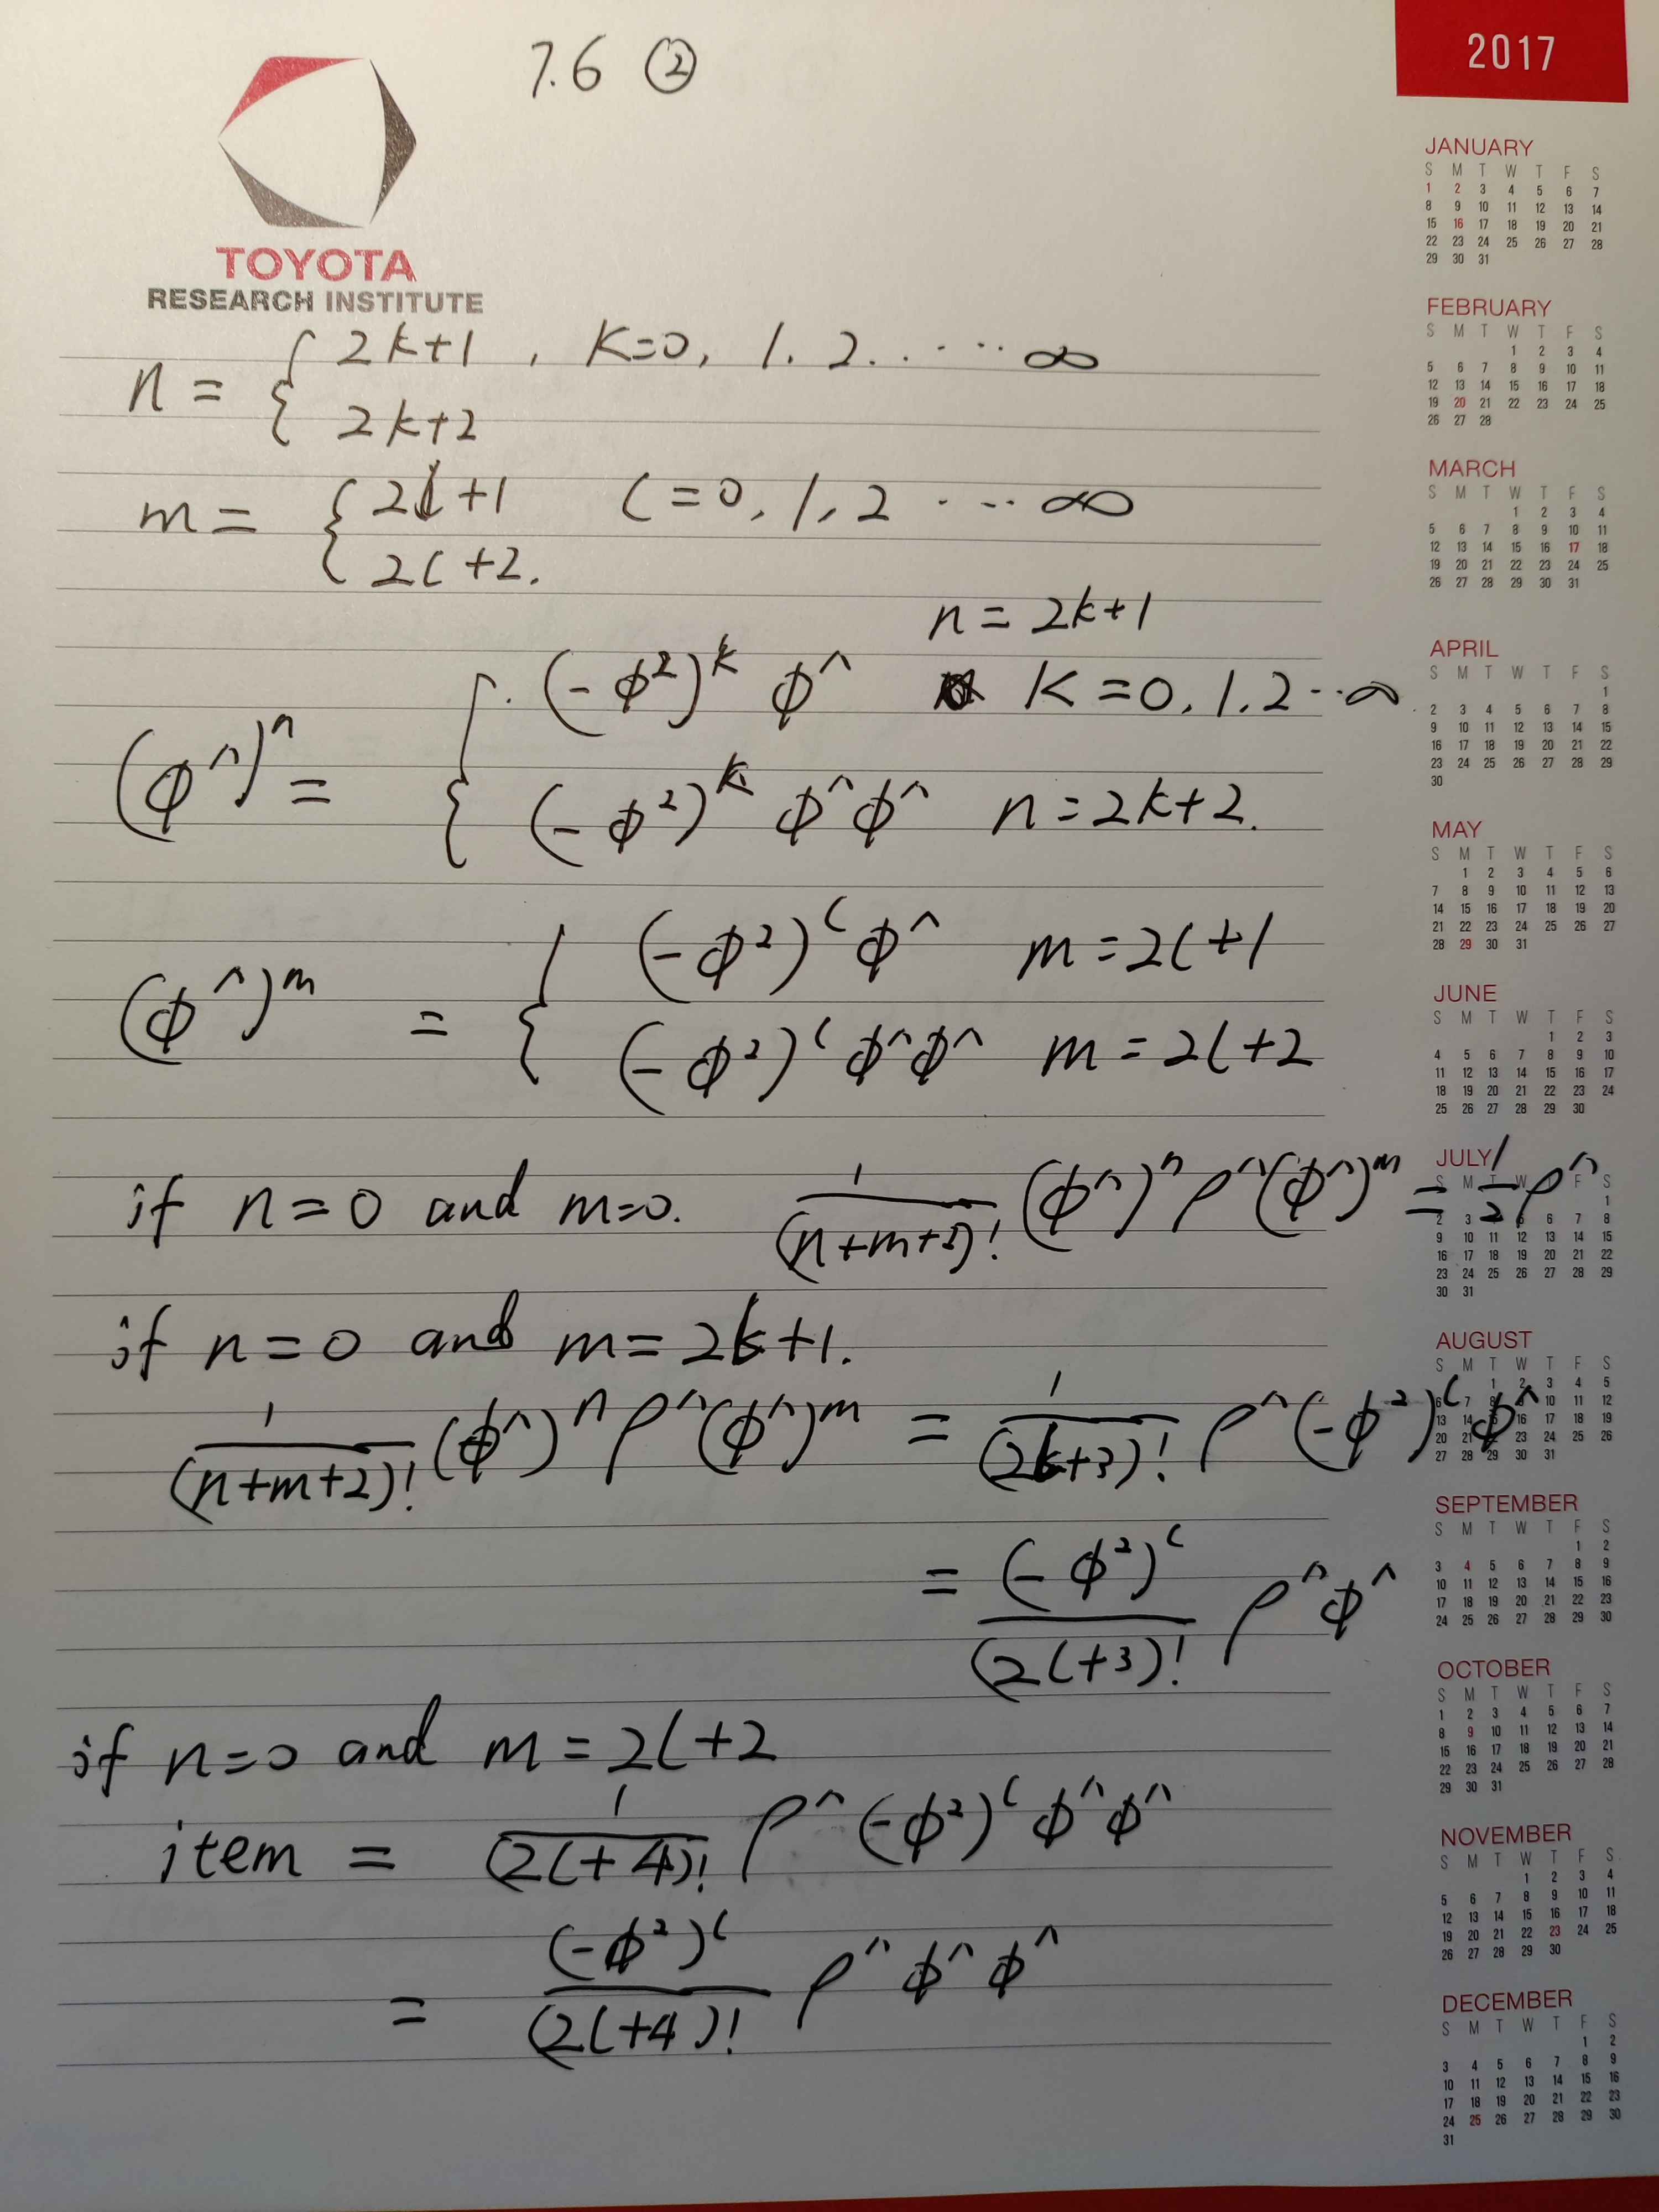 7.6 ②
TOYOTA
RESEARCH INSTITUTE
n = { 2k+1 , K=0, 1. 2. ... ∞
2k+2
m = { 2l+1 l=0, 1, 2 ... ∞
2l+2.
n = 2k+1
(φ^)ⁿ = { (-φ²)^k φ^ K=0, 1. 2 ... ∞
(-φ²)^k φ^φ^ n = 2k+2.
(φ^)^m = { (-φ²)^l φ^ m = 2l+1
(-φ²)^l φ^φ^ m = 2l+2
if n=0 and m=0. 1/(n+m+2)! (φ^)ⁿ ρ^(φ^)^m = 1/2 ρ^
if n=0 and m = 2k+1.
1/(n+m+2)! (φ^)ⁿ ρ^(φ^)^m = 1/(2k+3)! ρ^(-φ²)^l φ^
= (-φ²)^l/(2l+3)! ρ^φ^
if n=0 and m = 2l+2
item = 1/(2l+4)! ρ^(-φ²)^l φ^φ^
= (-φ²)^l/(2l+4)! ρ^φ^φ^
2017
JANUARY
S M T W T F S
1 2 3 4 5 6 7
8 9 10 11 12 13 14
15 16 17 18 19 20 21
22 23 24 25 26 27 28
29 30 31
FEBRUARY
S M T W T F S
1 2 3 4
5 6 7 8 9 10 11
12 13 14 15 16 17 18
19 20 21 22 23 24 25
26 27 28
MARCH
S M T W T F S
1 2 3 4
5 6 7 8 9 10 11
12 13 14 15 16 17 18
19 20 21 22 23 24 25
26 27 28 29 30 31
APRIL
S M T W T F S
1
2 3 4 5 6 7 8
9 10 11 12 13 14 15
16 17 18 19 20 21 22
23 24 25 26 27 28 29
30
MAY
S M T W T F S
1 2 3 4 5 6
7 8 9 10 11 12 13
14 15 16 17 18 19 20
21 22 23 24 25 26 27
28 29 30 31
JUNE
S M T W T F S
1 2 3
4 5 6 7 8 9 10
11 12 13 14 15 16 17
18 19 20 21 22 23 24
25 26 27 28 29 30
JULY
S M T W F S
1
2 3 6 7 8
9 10 11 12 13 14 15
16 17 18 19 20 21 22
23 24 25 26 27 28 29
30 31
AUGUST
S M T W T F S
1 2 3 4 5
6 7 10 11 12
13 14 16 17 18 19
20 21 23 24 25 26
27 28 29 30 31
SEPTEMBER
S M T W T F S
1 2
3 4 5 6 7 8 9
10 11 12 13 14 15 16
17 18 19 20 21 22 23
24 25 26 27 28 29 30
OCTOBER
S M T W T F S
1 2 3 4 5 6 7
8 9 10 11 12 13 14
15 16 17 18 19 20 21
22 23 24 25 26 27 28
29 30 31
NOVEMBER
S M T W T F S
1 2 3 4
5 6 7 8 9 10 11
12 13 14 15 16 17 18
19 20 21 22 23 24 25
26 27 28 29 30
DECEMBER
S M T W T F S
1 2
3 4 5 6 7 8 9
10 11 12 13 14 15 16
17 18 19 20 21 22 23
24 25 26 27 28 29 30
31